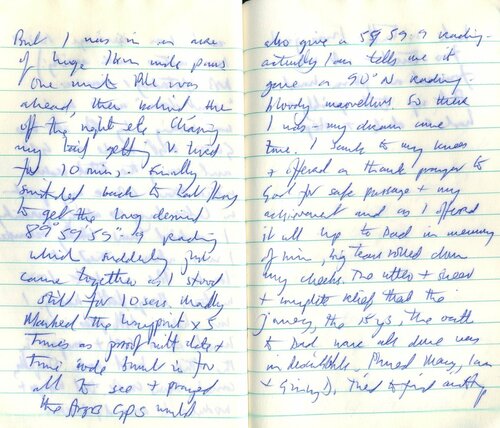 But I was in an area
of huge 1km wide pans
one minute Pole was
ahead, then behind then
off the right etc. Chasing
my tail getting v. tired
for 10 mins. Finally
switched back to Lat/long
to get the long desired
89° 59' 59".9 reading
which suddenly just
came together as I stood
still for 10 secs. Madly
Marked the waypoint x 5
times as proof with date +
time code built in for
all to see + prayed
the Argos GPS would
also give a 59 59.9 reading -
actually Ian tells me it
gave a 90°N reading
bloody marvellous. So there
I was - my dream come
true. I sank to my knees
+ offered a thank prayer to
God for safe passage + my
achievement and as I offered
it all up to Dad in memory
of him, big tears rolled down
my cheeks. The utter +
+ complete relief that the
journey, the 15 yrs, the oath
to Dad were all done was
indescribable. Phoned Mary, Ian
+ Ginny D. Tried to find